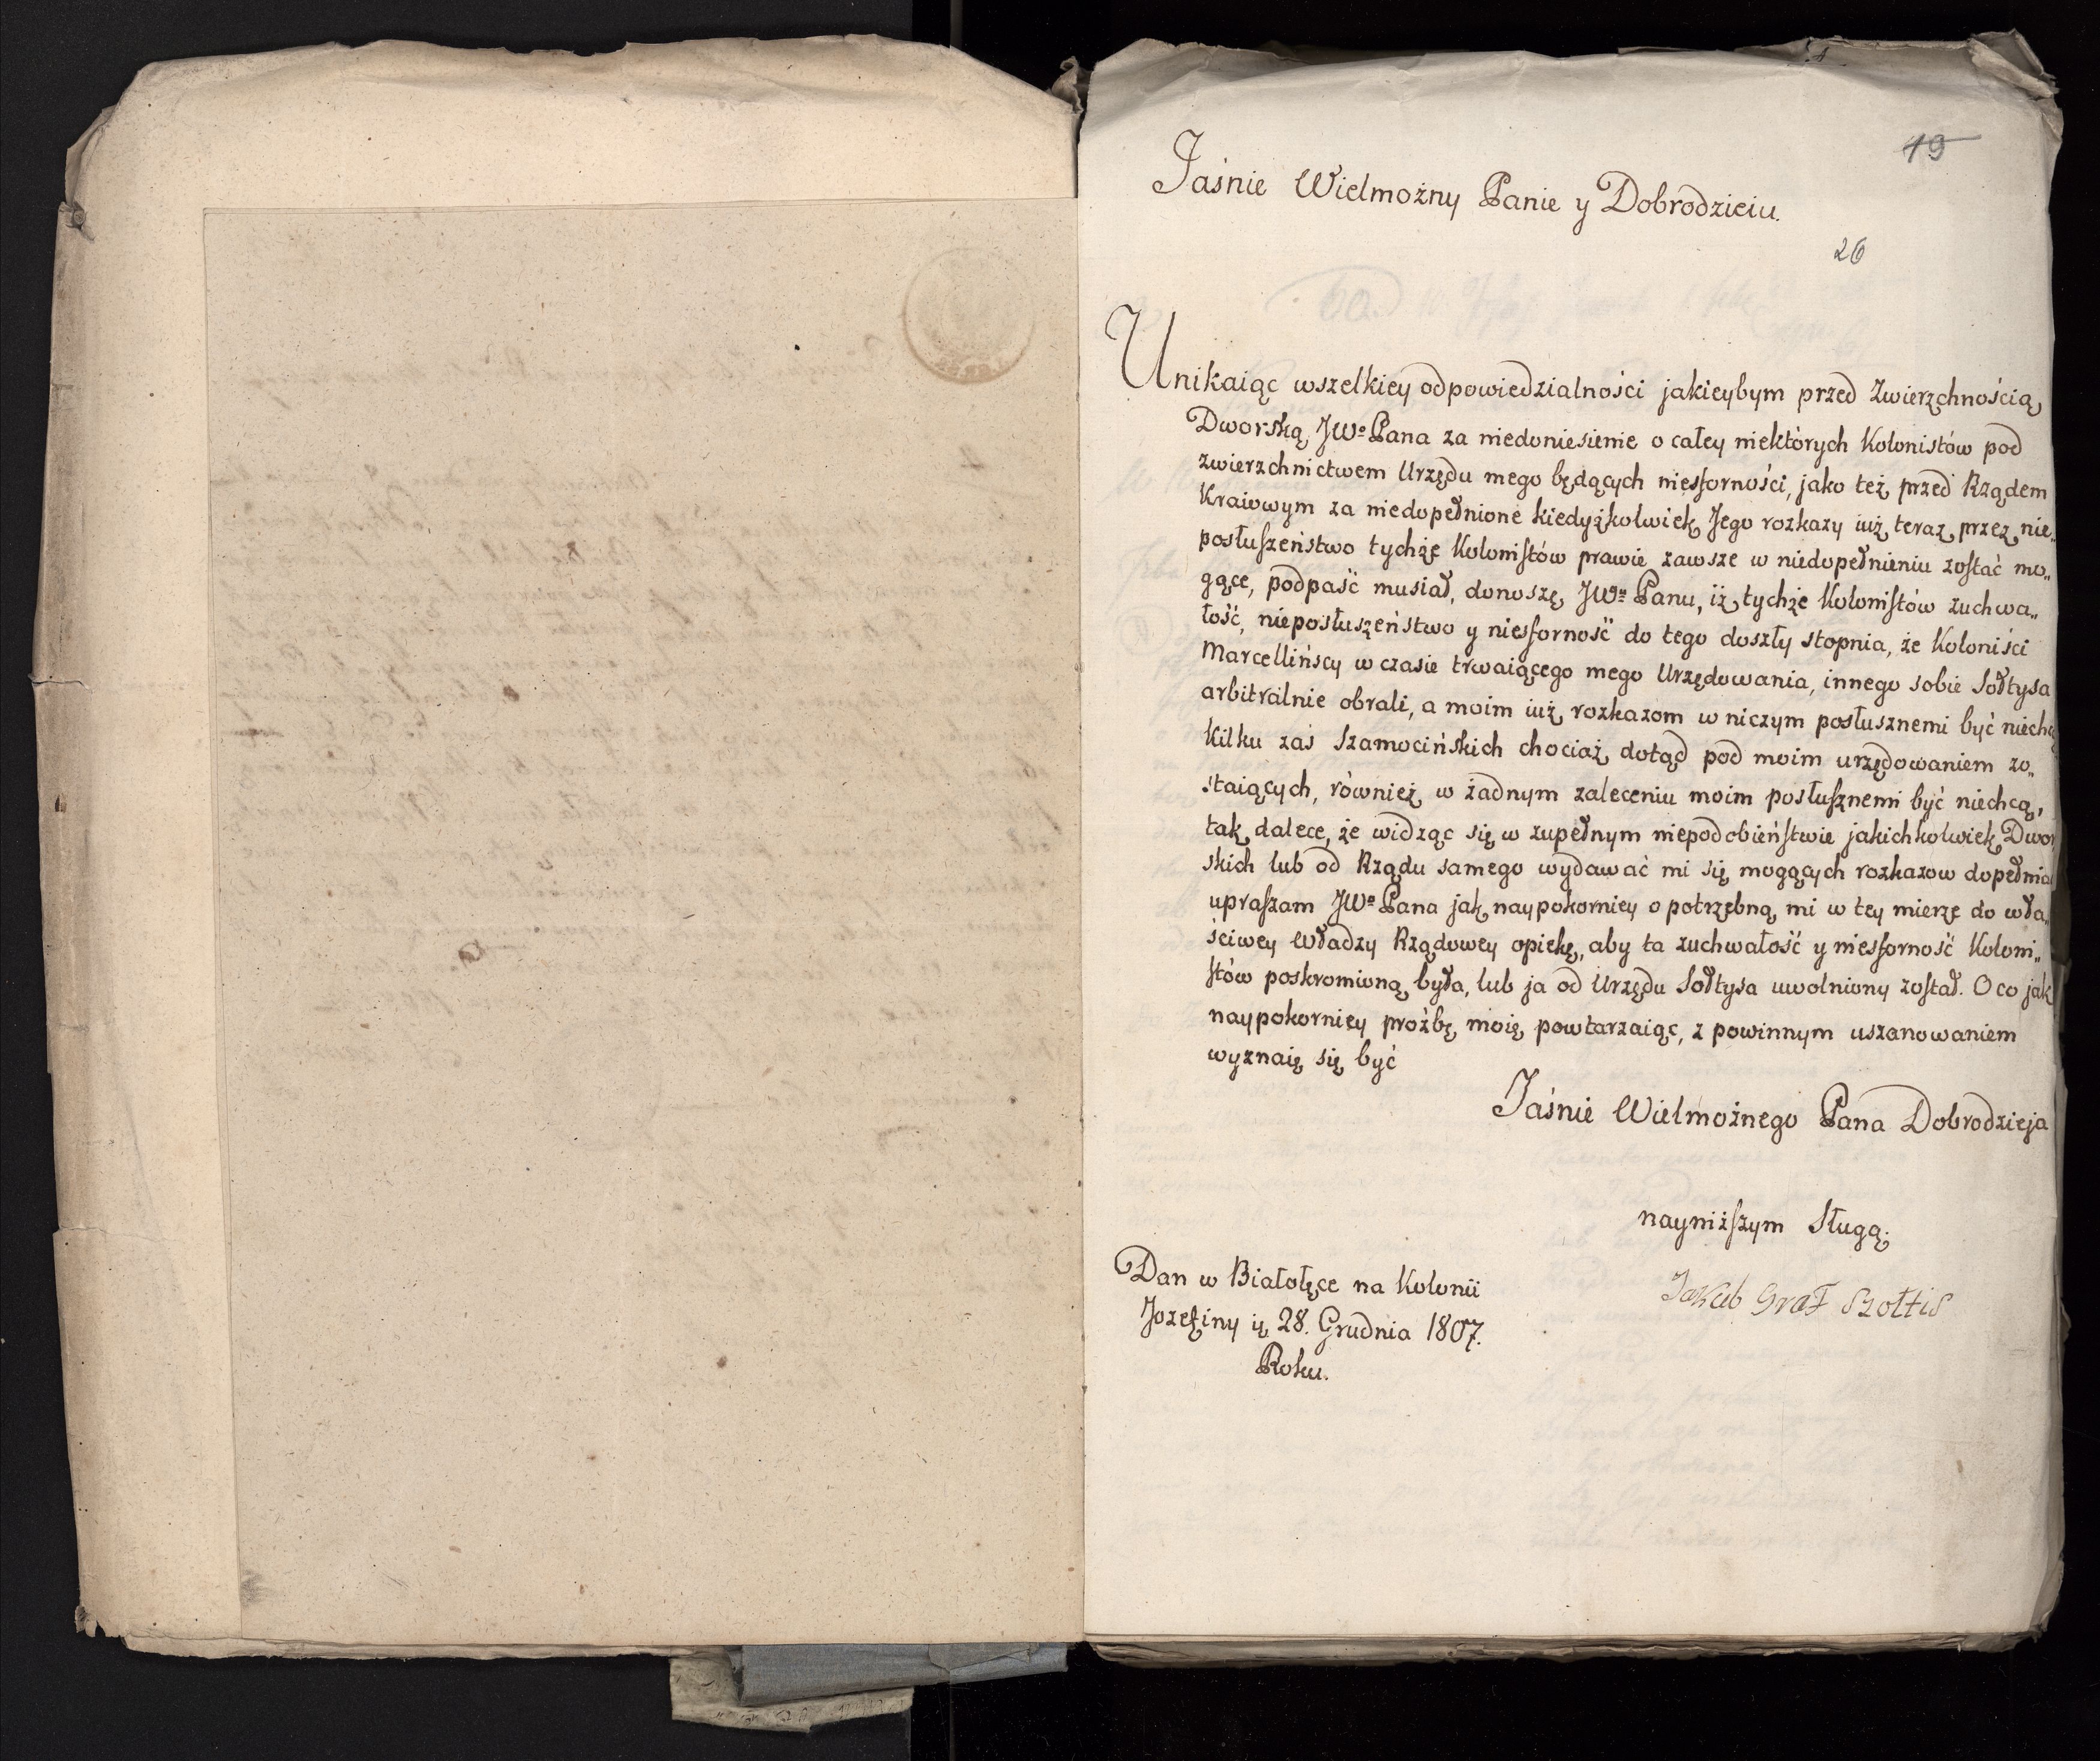 19
Jaśnie Wielmożny Panie y Dobrodzieiu.
26
Unikaiąc wszelkiey odpowiedzialności jakieybym przed Zwierzchnością
Dworską JWo Pana za niedoniesienie o całey niektórych Kolonistów pod
zwierzchnictwem Urzędu mego będących niesforności, jako też przed Rządem
Kraiowym za niedopełnione kiedyżkolwiek Jego rozkazy iuż teraz przez nie„
posłuszeństwo tychże Kolonistów prawie zawsze w niedopełnieniu zostać mo„
gące, podpaść musiał, donoszę JWo Panu, iż tychże Kolonistów zuchwa„
łość, nieposłuszeństwo y niesforność do tego doszły stopnia, że Koloniści
Marcellińscy w czasie trwaiącego mego Urzędowania, innego sobie Sołtysa
arbitralnie obrali, a moim iuż rozkazom w niczym posłusznemi być niechcą
Kilku zaś Szamocińskich chociaż dotąd pod moim urzędowaniem zo„
staiących, również w żadnym zaleceniu moim posłusznemi być niechcą,
tak dalece, że widząc się w zupełnym niepodobieństwie jakichkolwiek Dwor
skich lub od Rządu samego wydawać mi się mogących rozkazow dopełnia
upraszam JWo Pana jak naypokorniey o potrzebną mi w tey mierze do wła„
ściwey Władzy Rządowey opiekę, aby ta zuchwałość y niesforność Koloni„
stów poskromioną była, lub ja od Urzędu Sołtysa uwolniony został. O co jak
naypokorniey proźbę moię powtarzaiąc, z powinnym uszanowaniem
wyznaię się być
Jaśnie Wielmożnego Pana Dobrodzieja
nayniższym Sługą.
Dan w Białołęce na Kolonii
Jakub Graf Szołtis
Jozefiny 28. Grudnia 1807.
Roku.